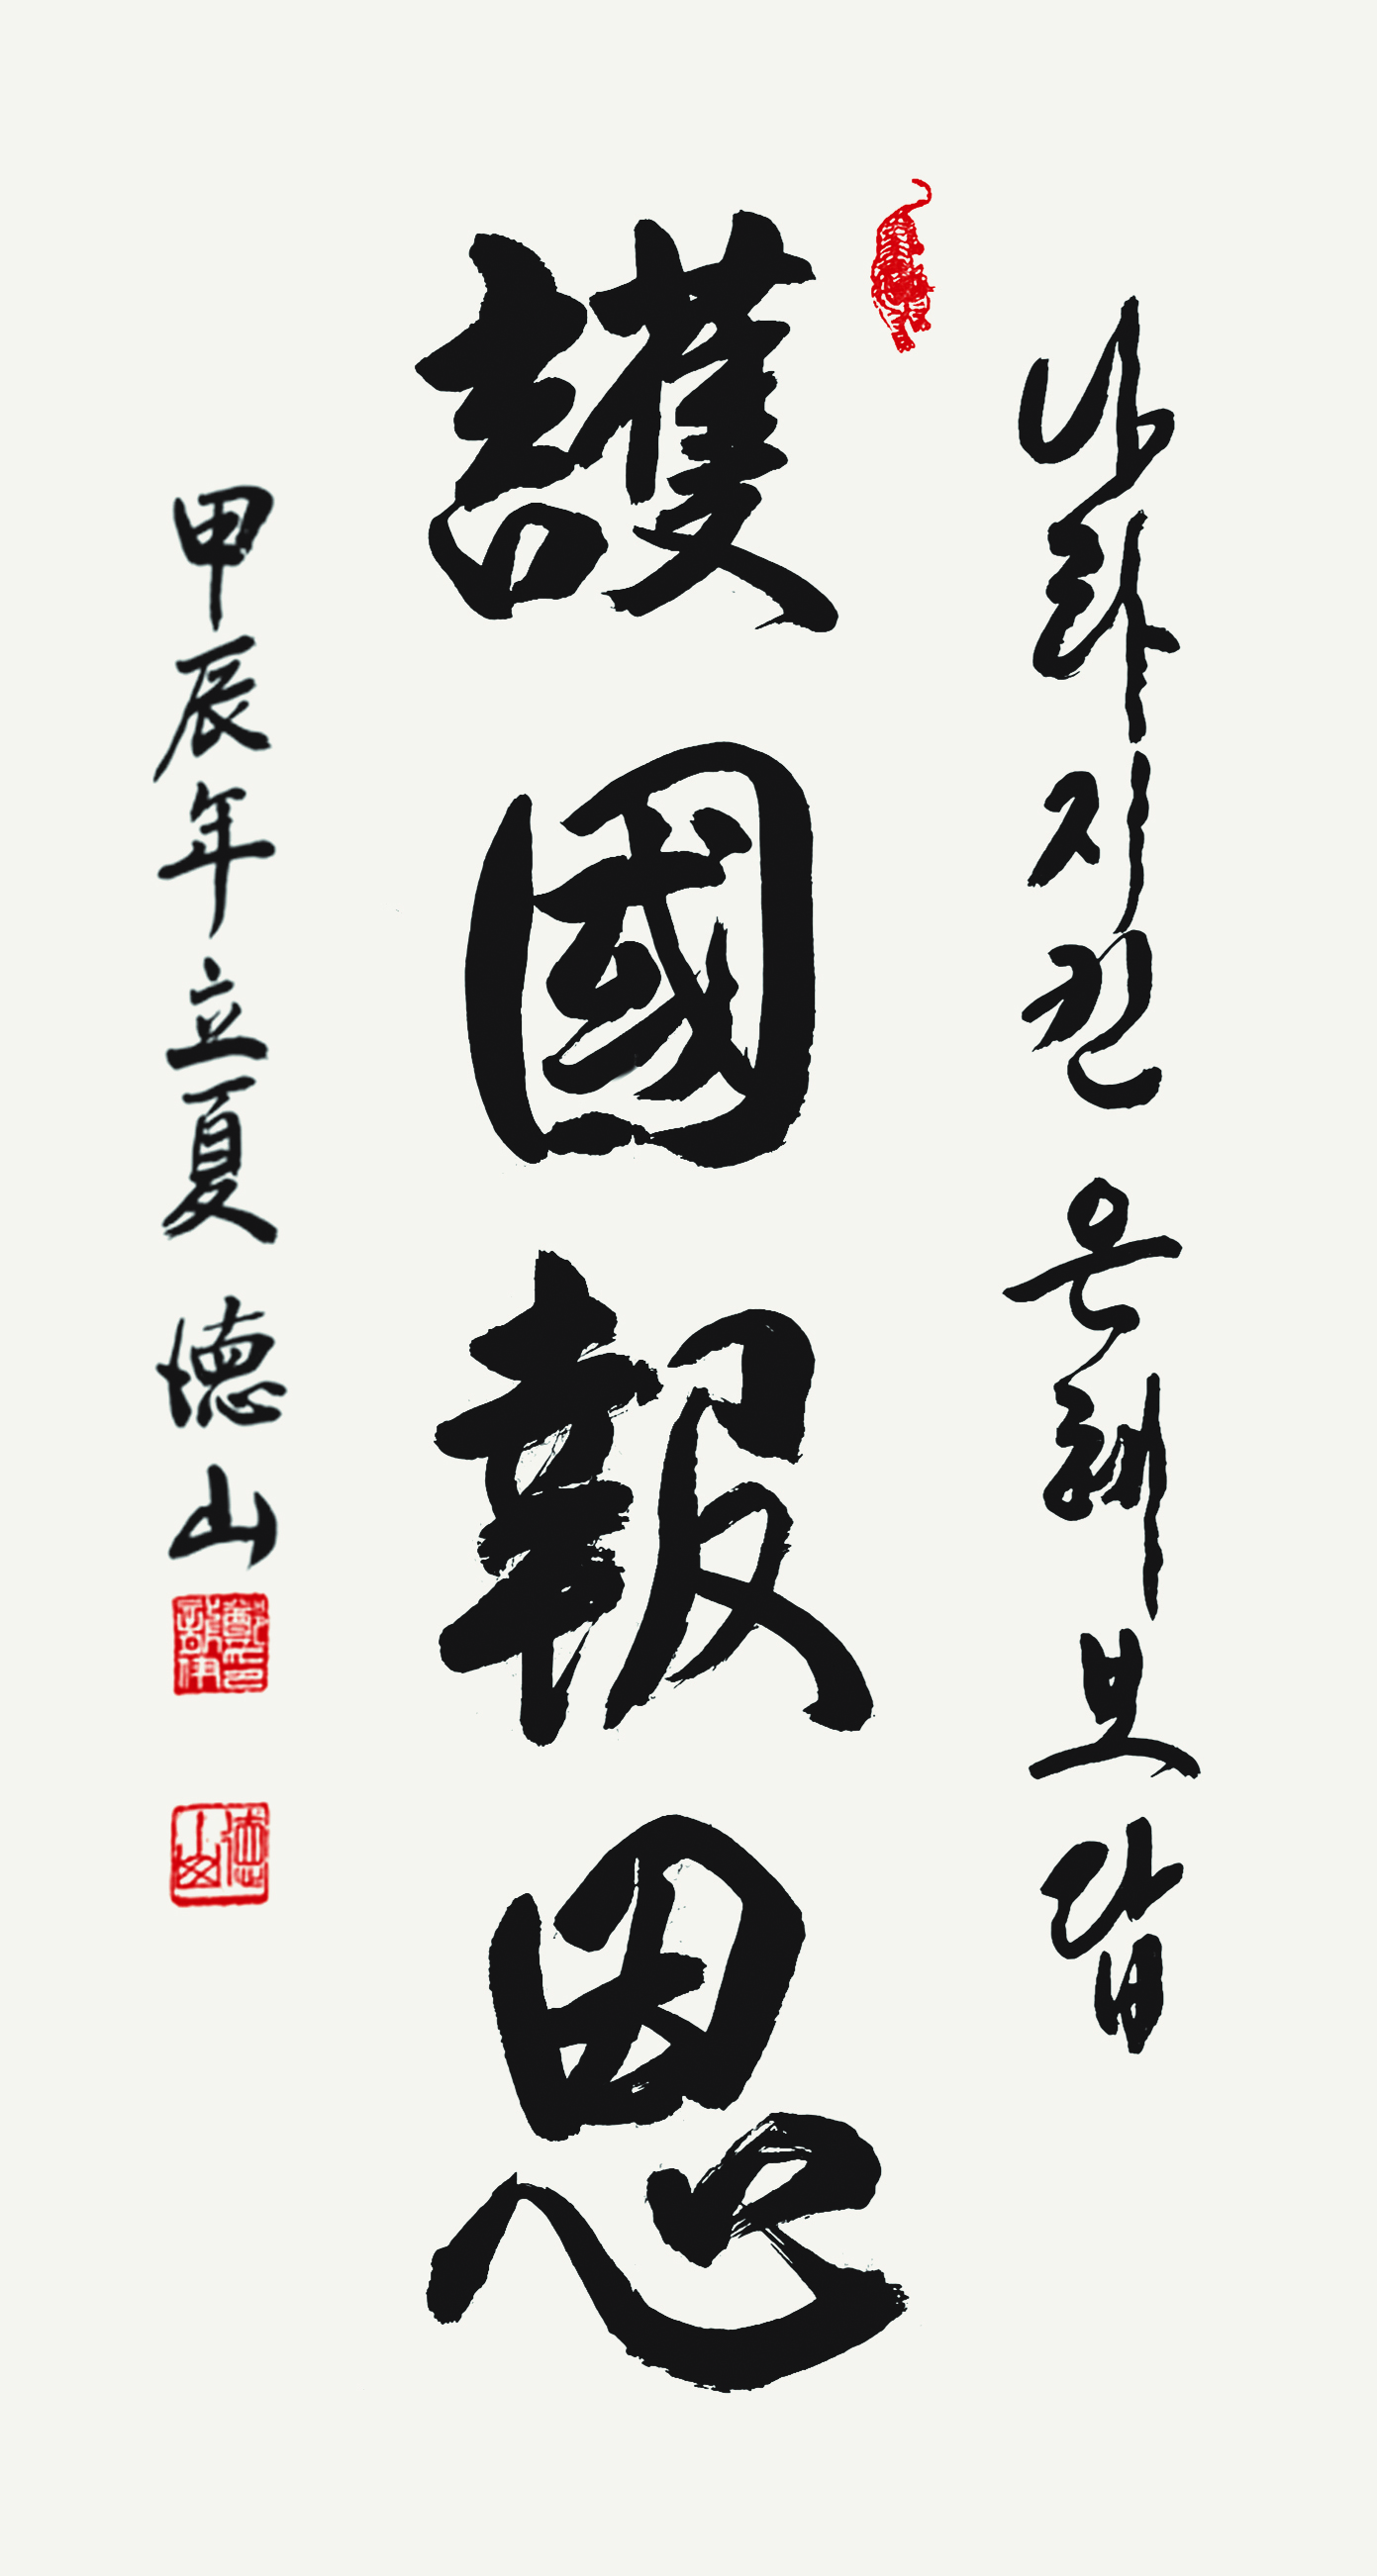 나라지킨 은혜보답
護國報恩
甲辰年立夏 德山
德山